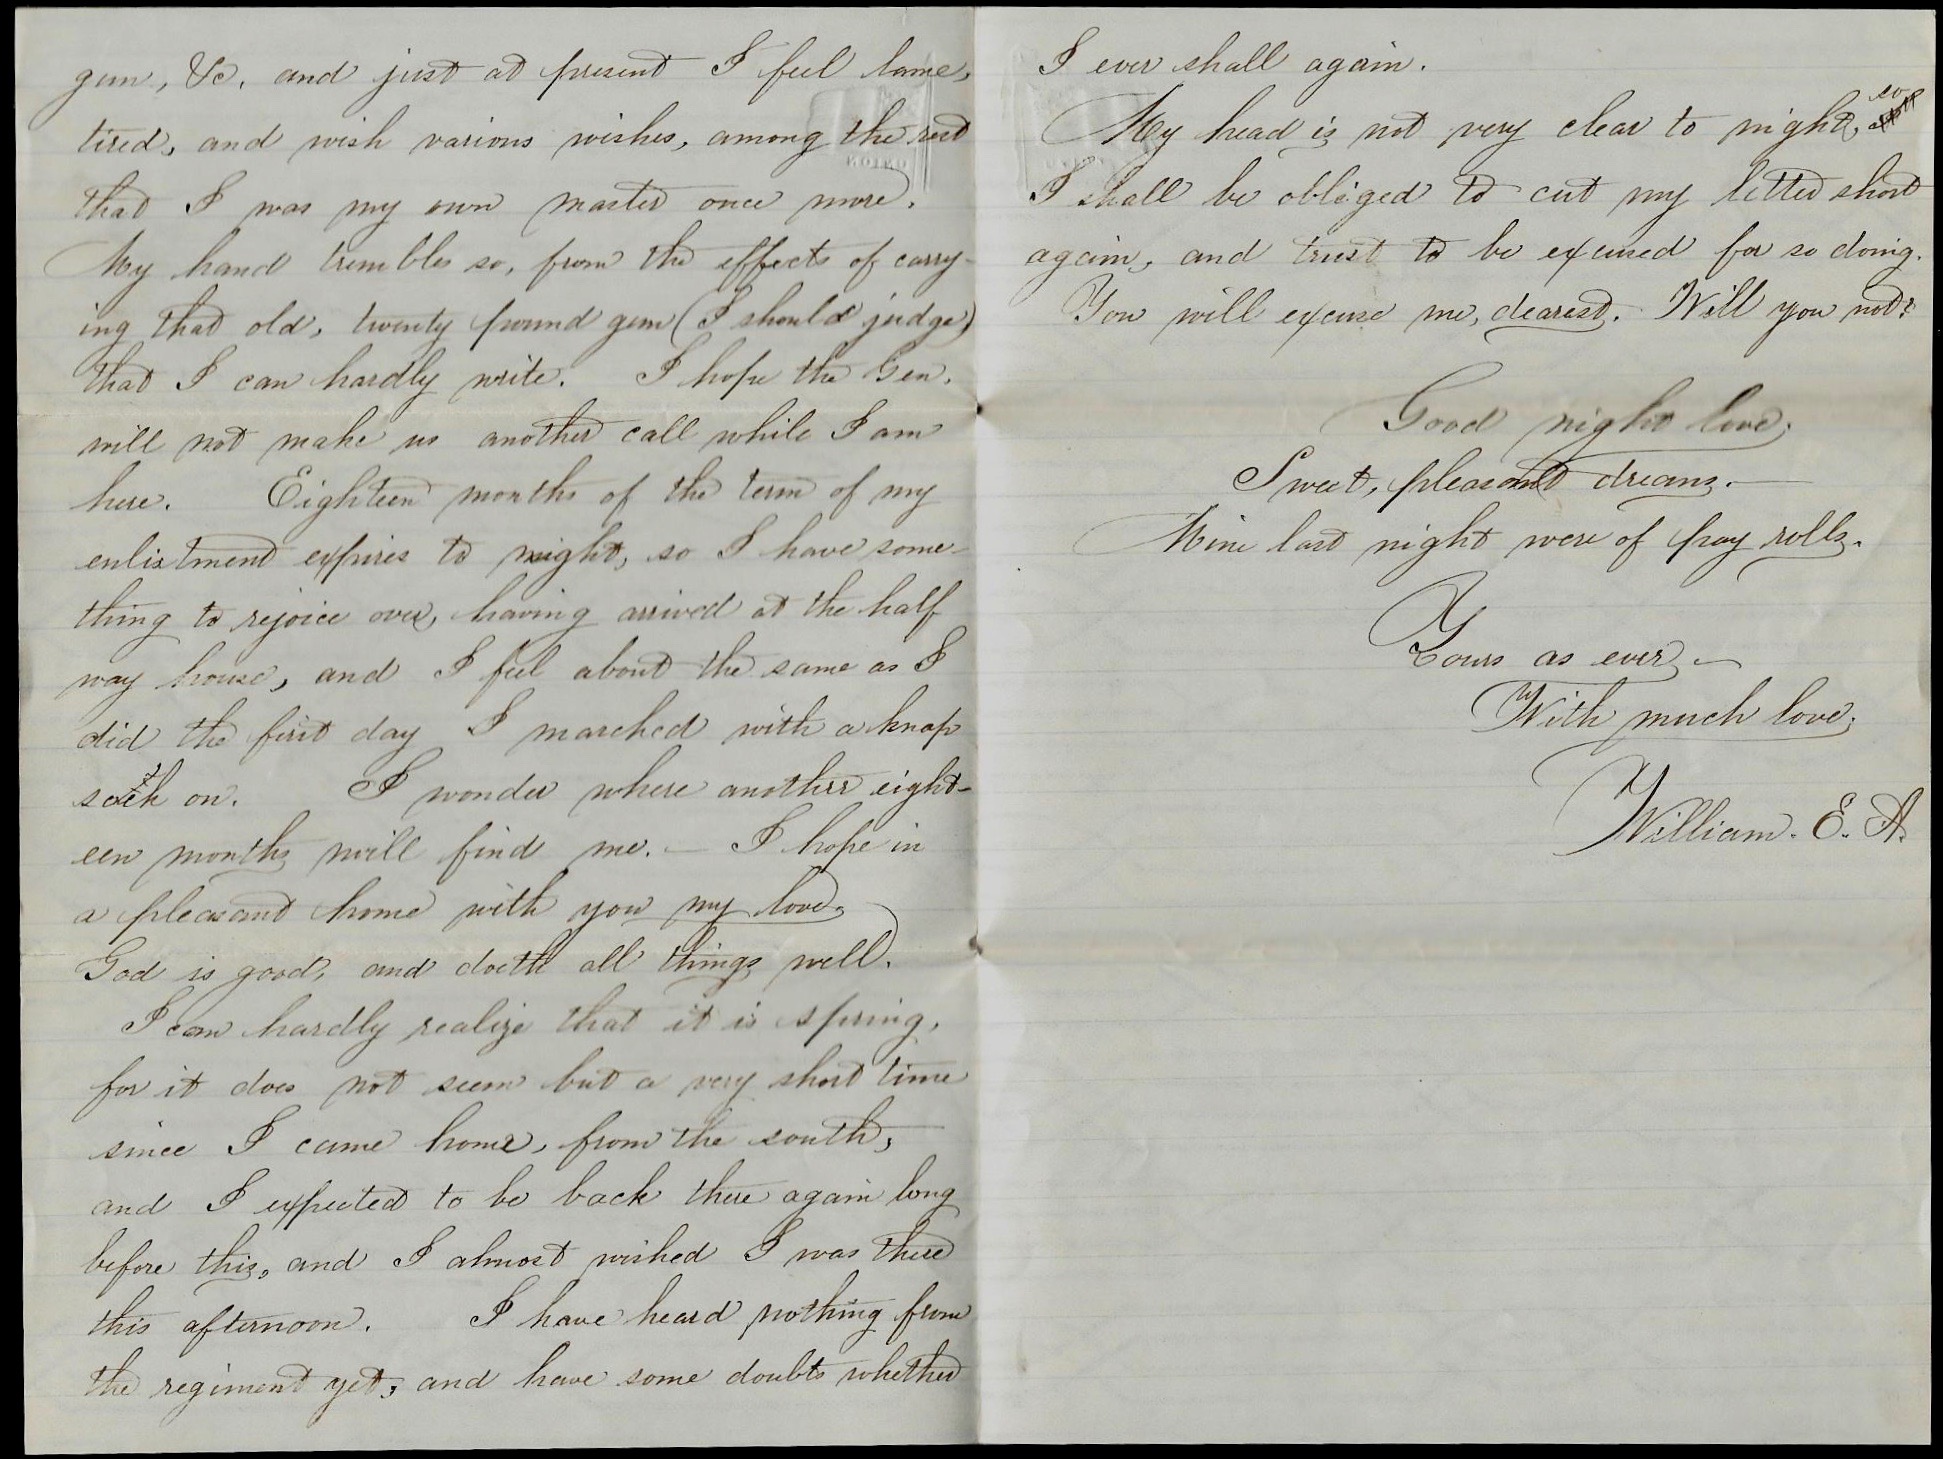 gun, &c. and just at present I feel lame,
tired, and wish various wishes, among the rest
that I was my own master once more.
My hand trembles so, from the effects of carry-
ing that old, twenty pound gun (I should judge)
that I can hardly write. I hope the Gen.
will not make us another call while I am
here. Eighteen months of the term of my
enlistment expires to night, so I have some-
thing to rejoice over, having arrived at the half
way house, and I feel about the same as I
did the first day I marched with a knap
sack on. I wonder where another eight-
een months will find me. — I hope in
a pleasant home with you my love.
God is good, and doeth all things well.
I can hardly realize that it is spring,
for it does not seem but a very short time
since I came home, from the south,
and I expected to be back there again long
before this, and I almost wished I was there
this afternoon. I have heard nothing from
the regiment yet, and have some doubts whether
I ever shall again.
My head is not very clear to night, so
I shall be obliged to cut my letter short
again, and trust to be excused for so doing.
You will excuse me, dearest. Will you not?
Good night love,
Sweet, pleasant dreams. —
Mine last night were of pay rolls.
Yours as ever —
With much love,
William. E. A.